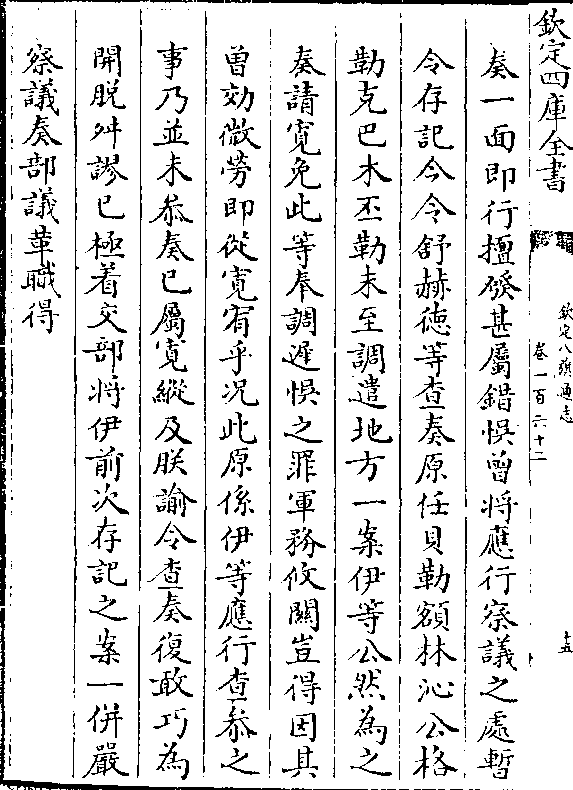 欽定四庫全書
欽定八旗通志
卷一百六十二
十五
奏一面即行擅發甚屬錯悞曾將應行察議之處暫
令存記今令舒赫德等查奏原任貝勒額林沁公格
勒克巴木丕勒未至調遣地方一案伊等公然為之
奏請寛免此等奉調遲悞之罪軍務攸關豈得因其
曽効微勞即從寛宥乎况此原係伊等應行查叅之
事乃並未叅奏已屬寛縱及朕諭令查奏復敢巧為
開脫舛謬已極着交部將伊前次存記之案一併嚴
察議奏部議革職得